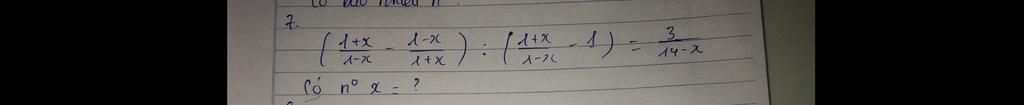 7.
( \frac{1+x}{1-x} - \frac{1-x}{1+x} ) : ( \frac{1+x}{1-x} - 1 ) = \frac{3}{14-x}
Có n° x = ?